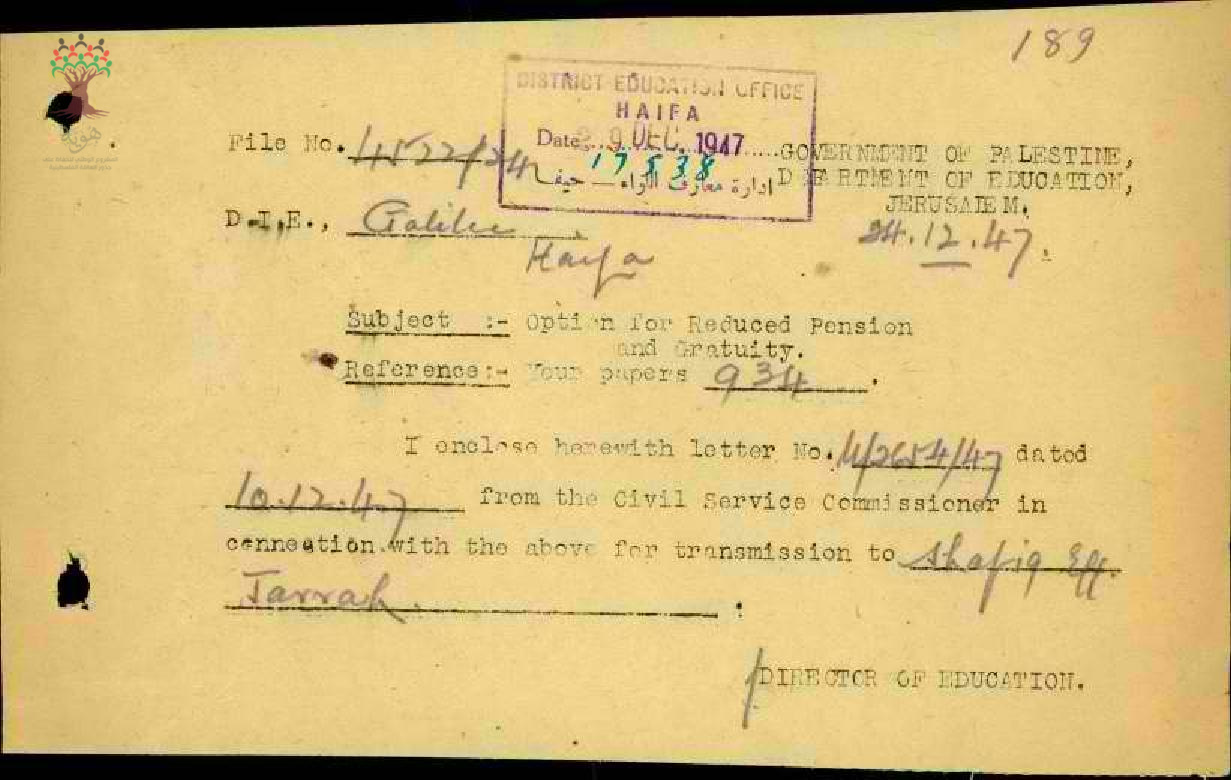 189
DISTRICT EDUCATION OFFICE
HAIFA
Date 29 DEC. 1947
17538
إدارة معارف اللواء — حيفا
File No. 4522/24
GOVERNMENT OF PALESTINE,
DEPARTMENT OF EDUCATION,
JERUSALEM.
D.I.E., Galilee
Haifa
24.12.47.
Subject :- Option for Reduced Pension
and Gratuity.
Reference:- Your papers 934.
I enclose herewith letter No. 4/2654/47 dated
10.12.47 from the Civil Service Commissioner in
connection with the above for transmission to Shafiq Eff.
Jarrah. :
/DIRECTOR OF EDUCATION.
هوية